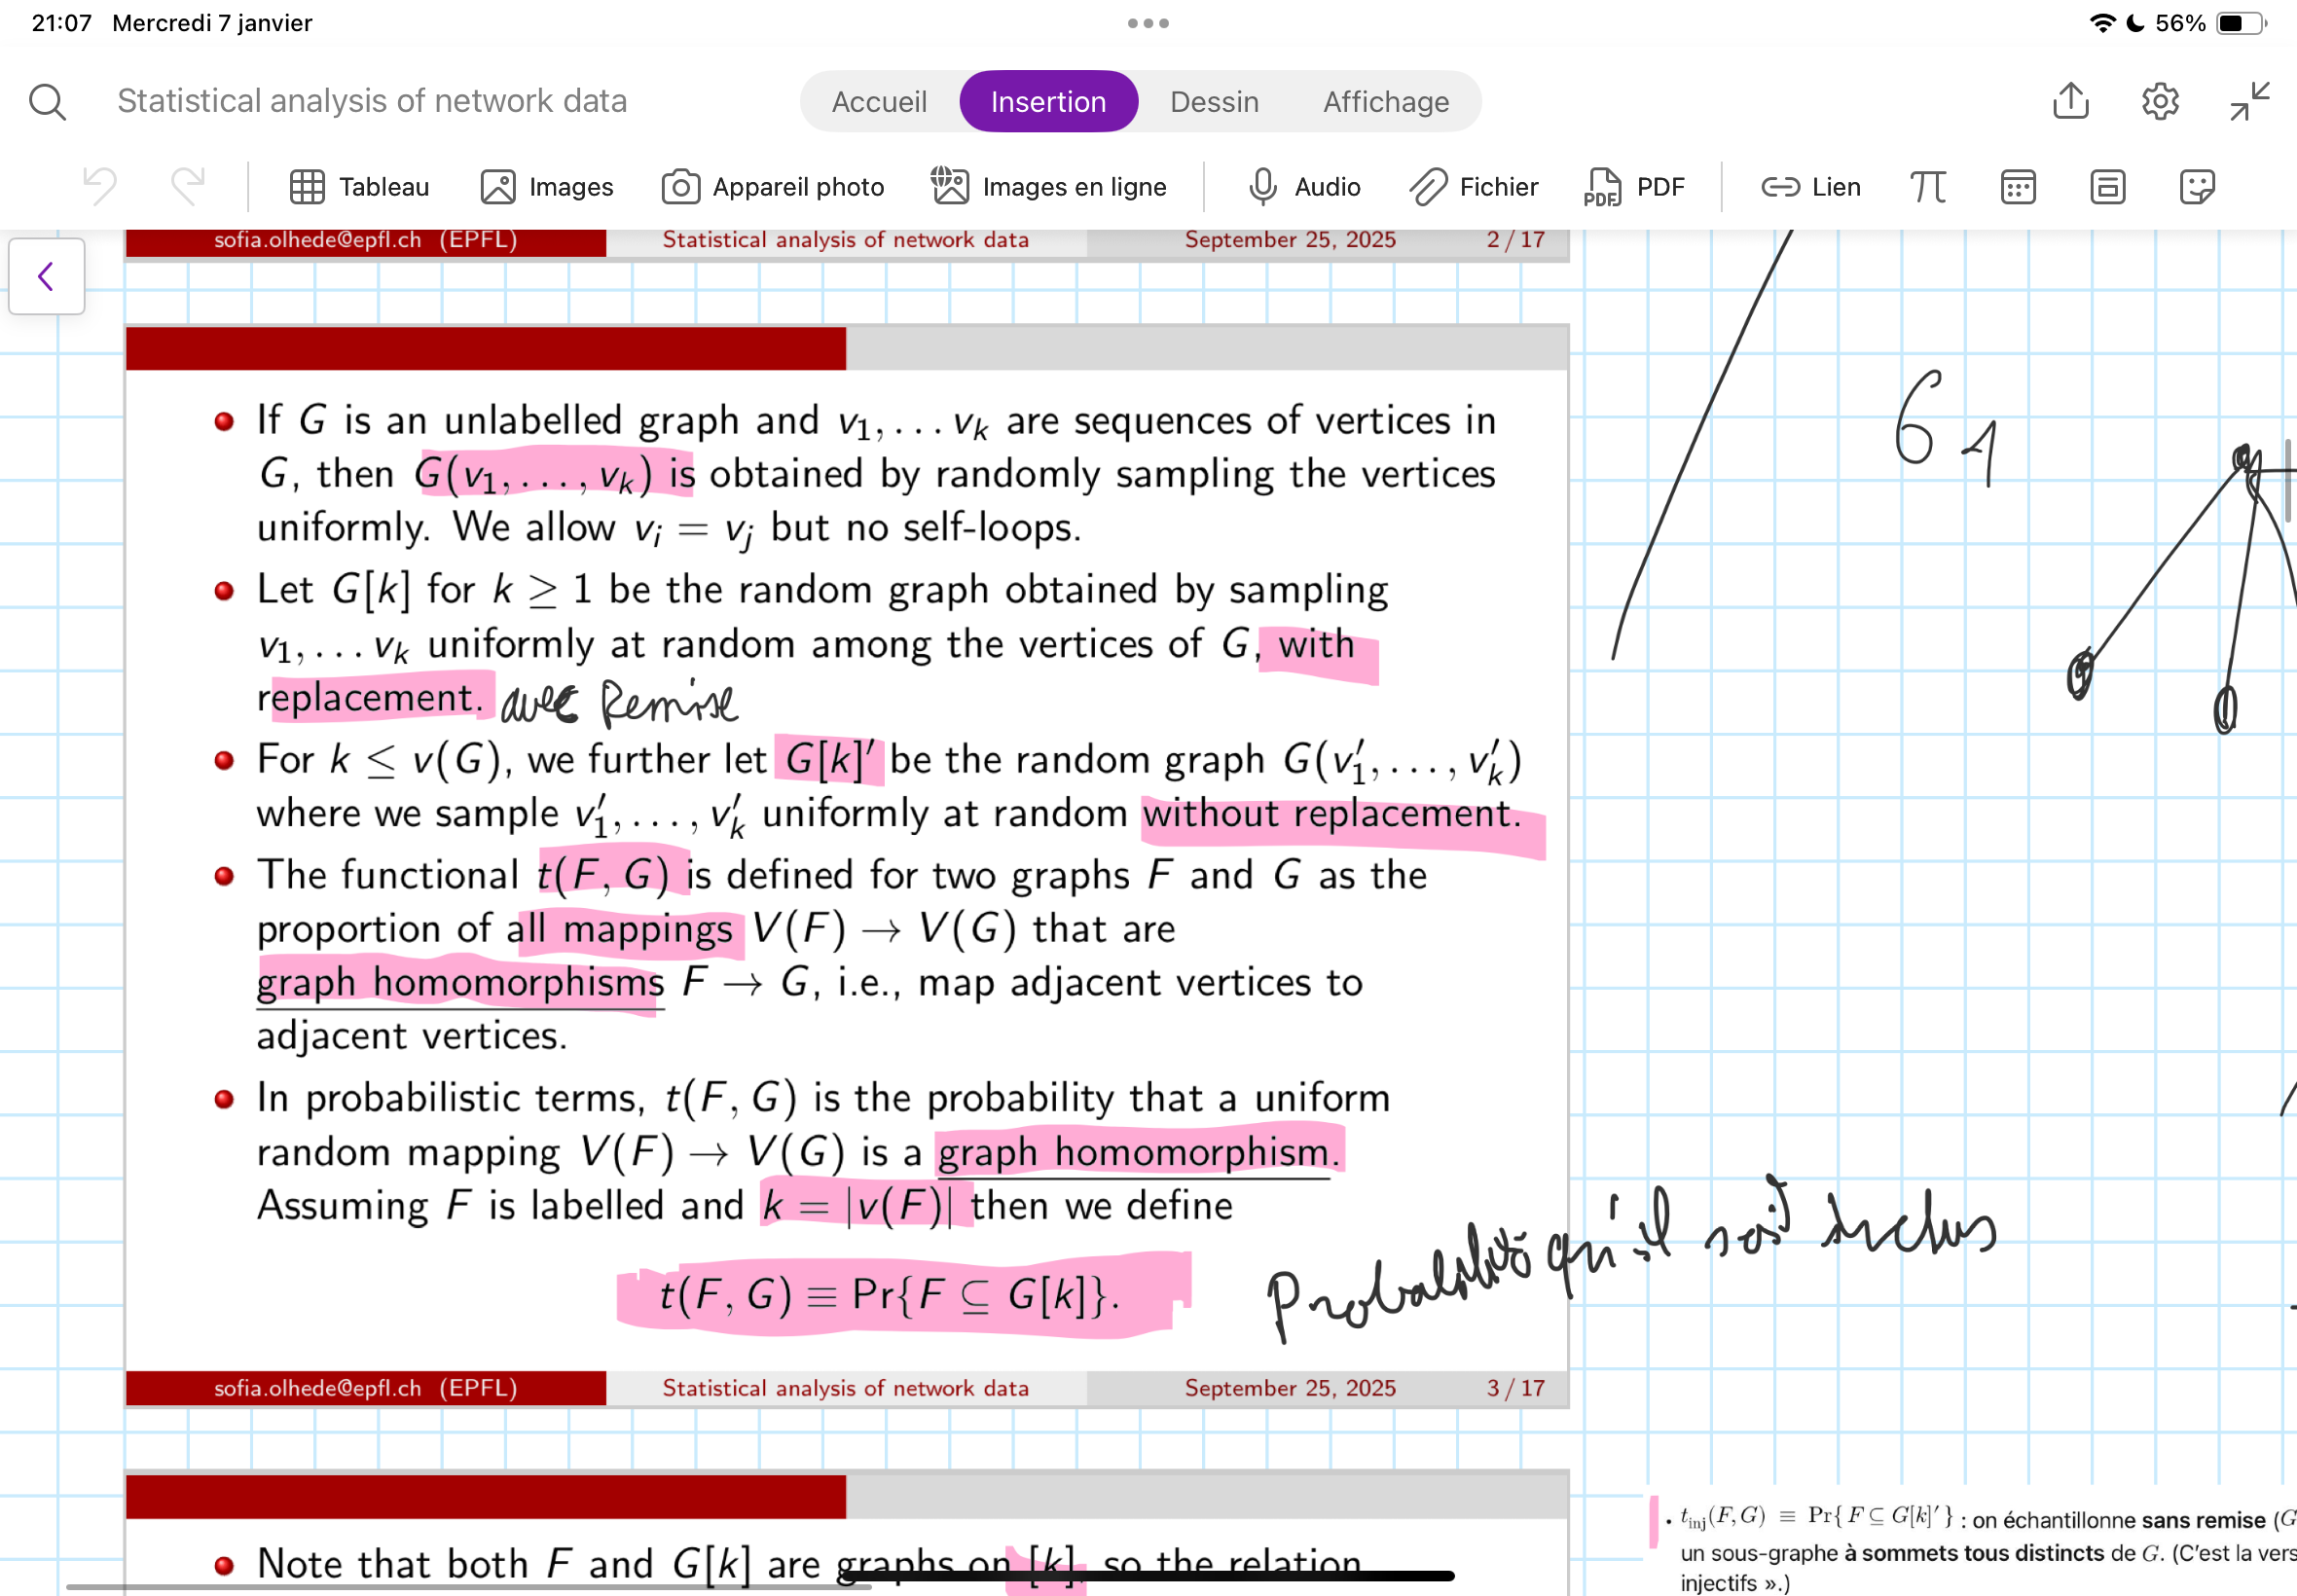 21:07 Mercredi 7 janvier
56%
Statistical analysis of network data
Accueil Insertion Dessin Affichage
Tableau Images Appareil photo Images en ligne Audio Fichier PDF Lien
sofia.olhede@epfl.ch (EPFL) Statistical analysis of network data September 25, 2025 2 / 17
• If G is an unlabelled graph and v₁, . . . vₖ are sequences of vertices in
G, then G(v₁, . . . , vₖ) is obtained by randomly sampling the vertices
uniformly. We allow vᵢ = vⱼ but no self-loops.
• Let G[k] for k ≥ 1 be the random graph obtained by sampling
v₁, . . . vₖ uniformly at random among the vertices of G, with
replacement. avec Remise
• For k ≤ v(G), we further let G[k]′ be the random graph G(v′₁, . . . , v′ₖ)
where we sample v′₁, . . . , v′ₖ uniformly at random without replacement.
• The functional t(F, G) is defined for two graphs F and G as the
proportion of all mappings V(F) → V(G) that are
graph homomorphisms F → G, i.e., map adjacent vertices to
adjacent vertices.
• In probabilistic terms, t(F, G) is the probability that a uniform
random mapping V(F) → V(G) is a graph homomorphism.
Assuming F is labelled and k = |v(F)| then we define
t(F, G) ≡ Pr{F ⊆ G[k]}.
Probabilité qu'il soit inclus
sofia.olhede@epfl.ch (EPFL) Statistical analysis of network data September 25, 2025 3 / 17
• Note that both F and G[k] are graphs on [k], so the relation
• t_inj(F, G) ≡ Pr{ F ⊆ G[k]′ } : on échantillonne sans remise (G
un sous-graphe à sommets tous distincts de G. (C'est la vers
injectifs ».)